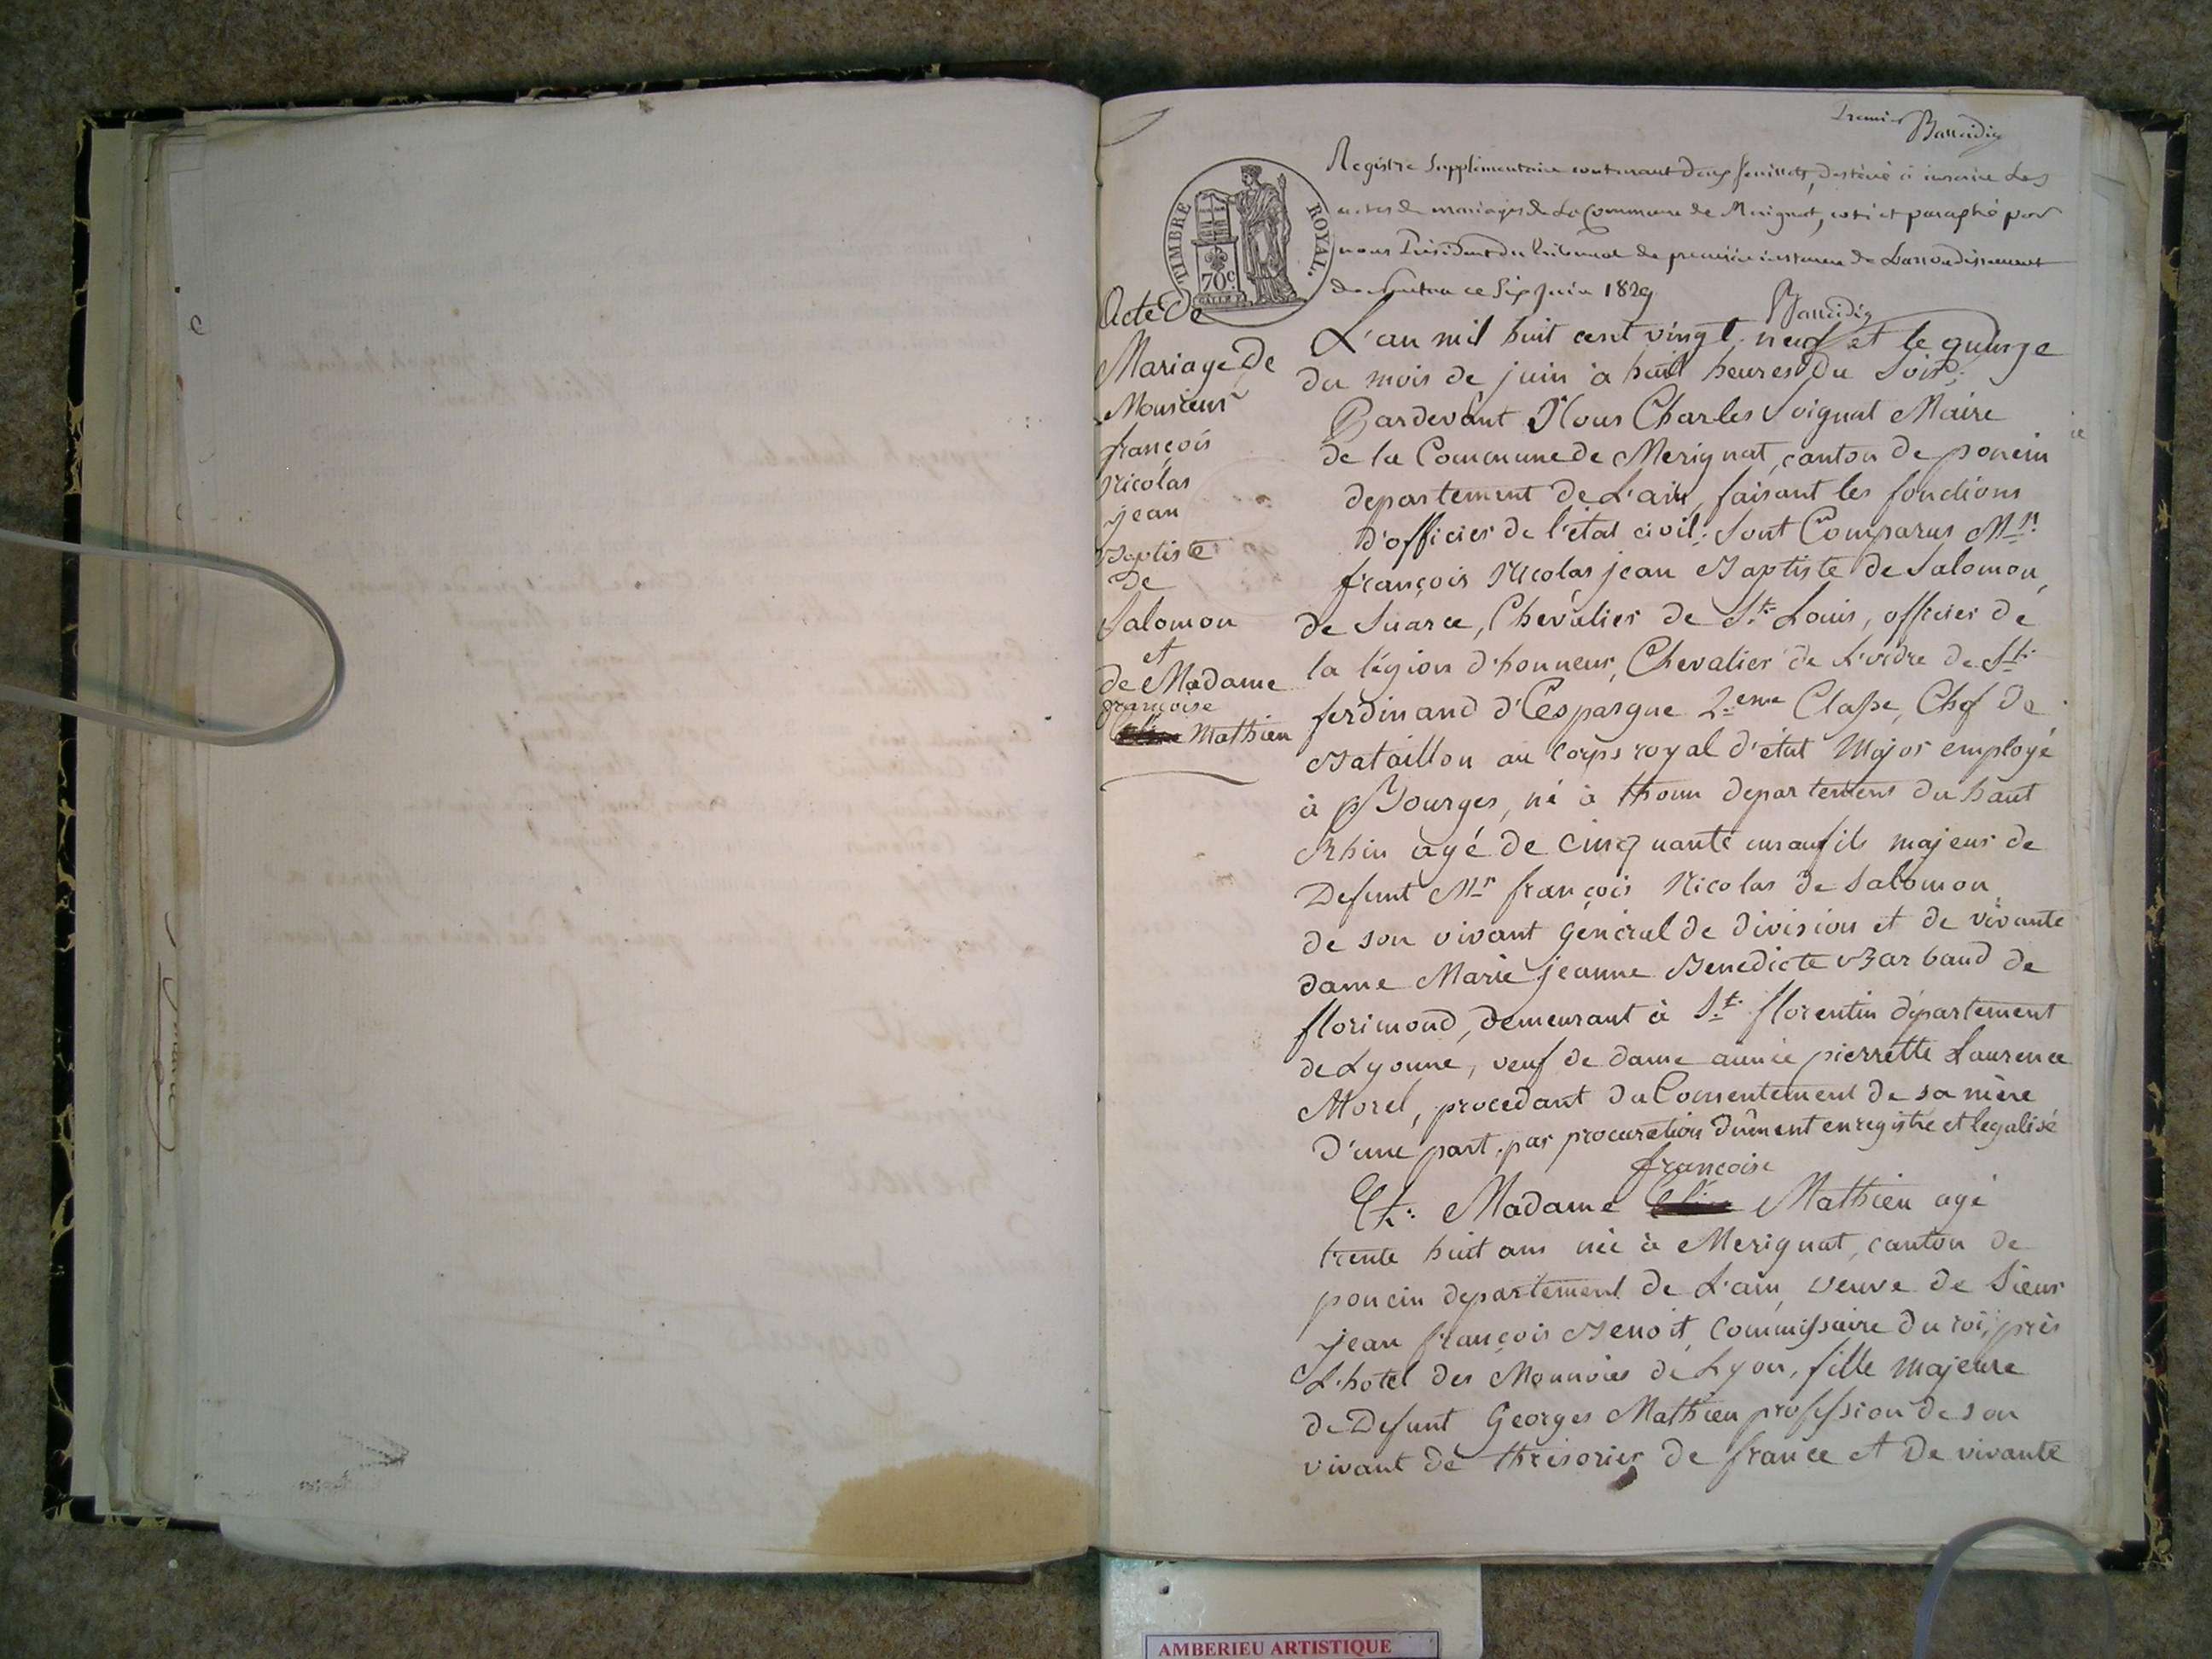 Premier
Registre Supplémentaire contenant deux feuillets, destiné à inscrire Les
actes de mariages de La Commune de Merignat, coté et paraphé par
nous Président du tribunal de première instance de L'arrondissement
de ce Six Juin 1829
TIMBRE ROYAL.
70c
Acte De
Mariage De
Monsieur
françois
Nicolas
jean
Baptiste
De
Salomon
et
de Madame
françoise
Mathieu
L'an mil huit cent vingt neuf et le quinze
du mois de juin à huit heures du Soir;
Pardevant Nous Charles Soignat Maire
de la Commune de Merignat, canton de poncin
departement de L'ain, faisant les fonctions
d'officier de l'état civil: sont Comparus Mr
françois Nicolas jean Baptiste de Salomon,
de Suarce, Chevalier de St Louis, officier de
la légion d'honneur, Chevalier de L'ordre de St
ferdinand d'Espargne 2.eme Classe, Chef de
Bataillon au Corps royal d'état Major employé
à Bourges, né à thann departement du haut
Rhin agé de cinquante ans fils majeur de
Defunt Mr françois Nicolas de Salomon
de son vivant général de division et de vivante
dame Marie jeanne Benedicte Barbaud de
florimond, demeurant à St. florentin département
de Lyonne, veuf de dame aimée pierrette Laurence
Morel, procedant du Consentement de sa mère
D'une part. par procuration dûment enregistré et legalisé
françoise
Et: Madame Mathieu agé
trente huit ans née à Merignat, canton de
poncin departement de L'ain, veuve de Sieur
jean françois Benoit, Commissaire du roi, près
L'hotel des Monnoies de Lyon, fille majeure
de Defunt Georges Mathieu profession de son
vivant de thrésorier de france et De vivante
AMBERIEU ARTISTIQUE